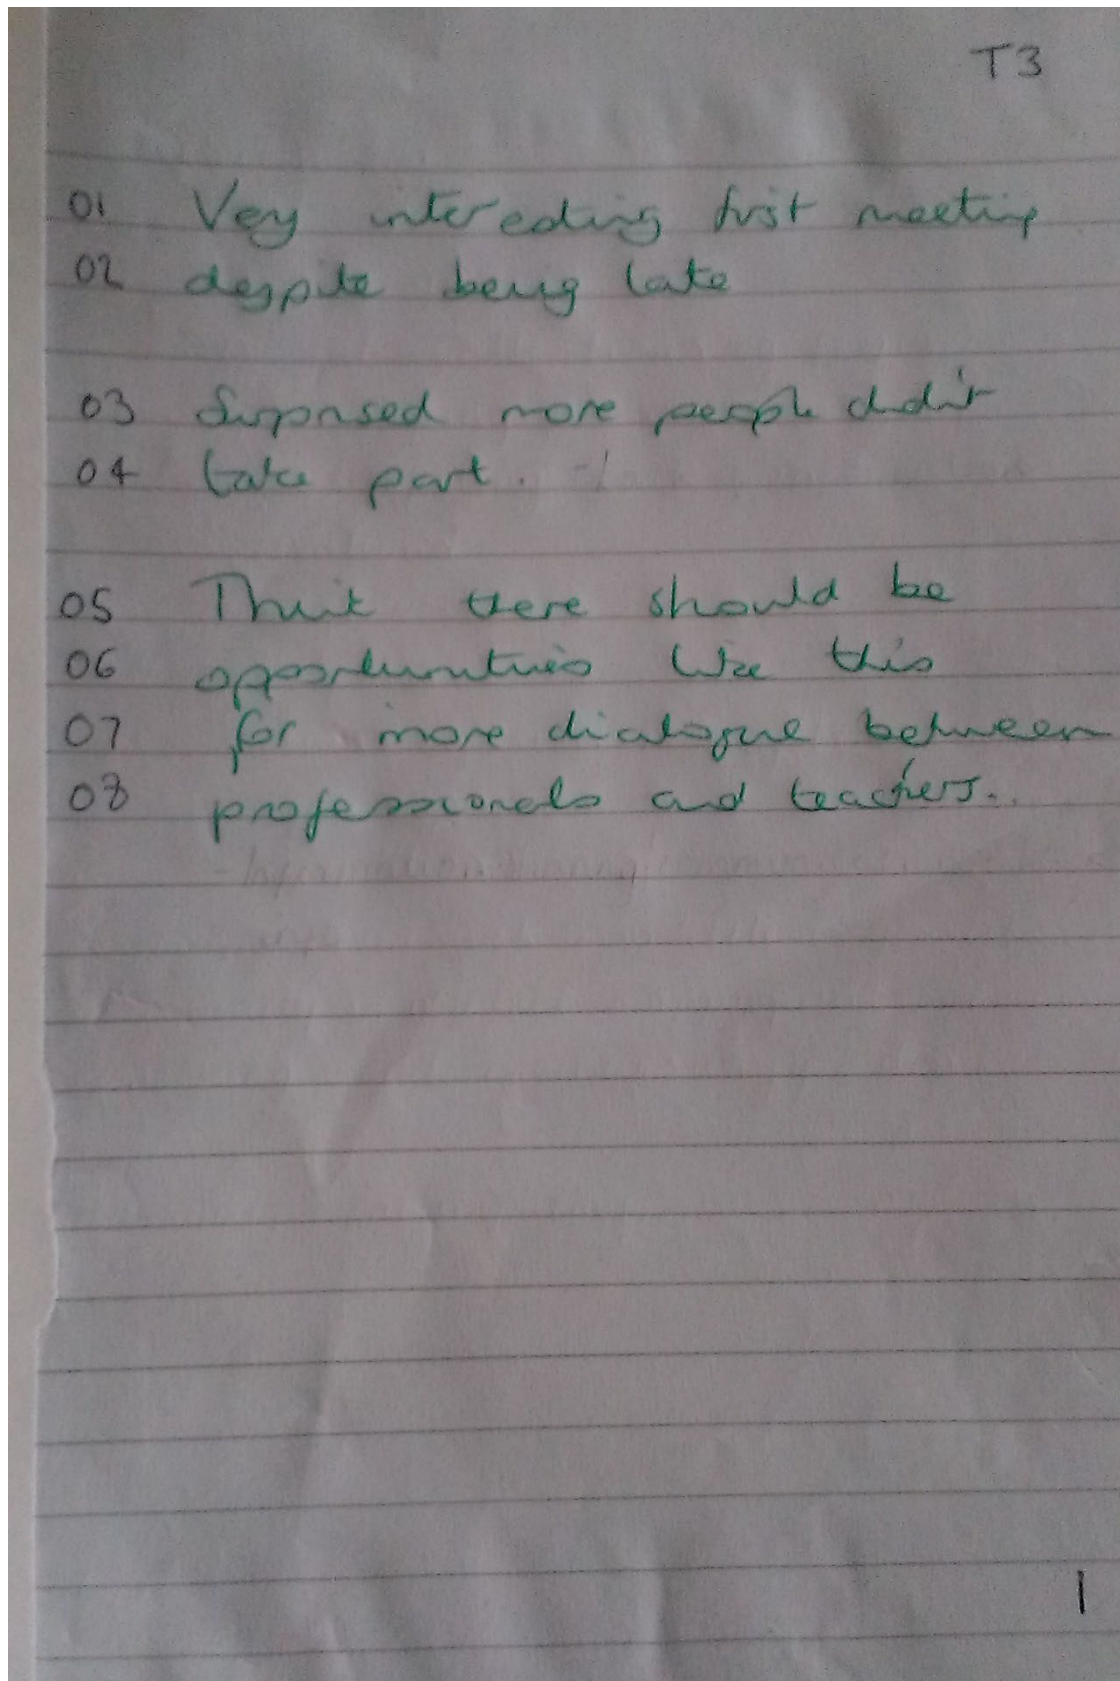 T3
01 Very interesting first meeting
02 despite being late
03 Surprised more people didn't
04 take part.
05 Think there should be
06 opportunities like this
07 for more dialogue between
08 professionals and teachers.
1